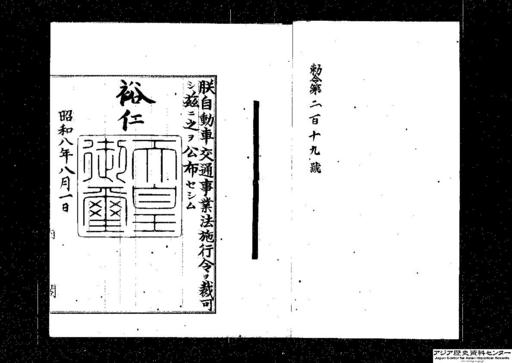 勅令第二百十九號
朕自動車交通事業法施行令ヲ裁可
シ茲ニ之ヲ公布セシム
裕仁
天皇
御璽
昭和八年八月一日
内閣
アジア歴史資料センター
Japan Center for Asian Historical Records